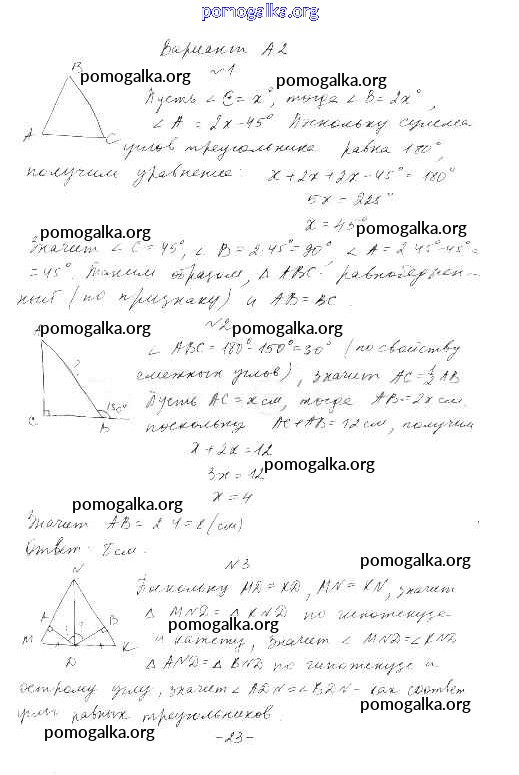 pomogalka.org
Вариант А2
pomogalka.org
№1
pomogalka.org
B
A
C
Пусть ∠C = x°, тогда ∠B = 2x°,
∠A = 2x-45° Поскольку сумма
углов треугольника равна 180°,
получим уравнение: x+2x+2x-45°=180°
5x = 225°
x = 45°
pomogalka.org
pomogalka.org
Значит ∠C=45°, ∠B=2·45°=90°, ∠A=2·45°-45°=
=45°. Таким образом, △ABC - равнобедрен-
ный (по признаку) и AB=BC.
№2
pomogalka.org
pomogalka.org
A
C
B
150°
∠ABC=180°-150°=30° (по свойству
смежных углов), значит AC=½AB
Пусть AC=x см, тогда AB=2x см.
поскольку AC+AB=12см, получим
x+2x=12
3x=12
pomogalka.org
x=4
pomogalka.org
Значит AB=2·4=8(см)
Ответ: 8см.
№3
pomogalka.org
N
A
B
M
D
K
Поскольку MD=KD, MN=KN, значит
△MND=△KND по гипотенузе
pomogalka.org
и катету, значит ∠MND=∠KND
△AND=△BND по гипотенузе и
острому углу, значит ∠ADN=∠BDN - как соответ
pomogalka.org
углы равных треугольников.
pomogalka.org
pomogalka.org
-23-